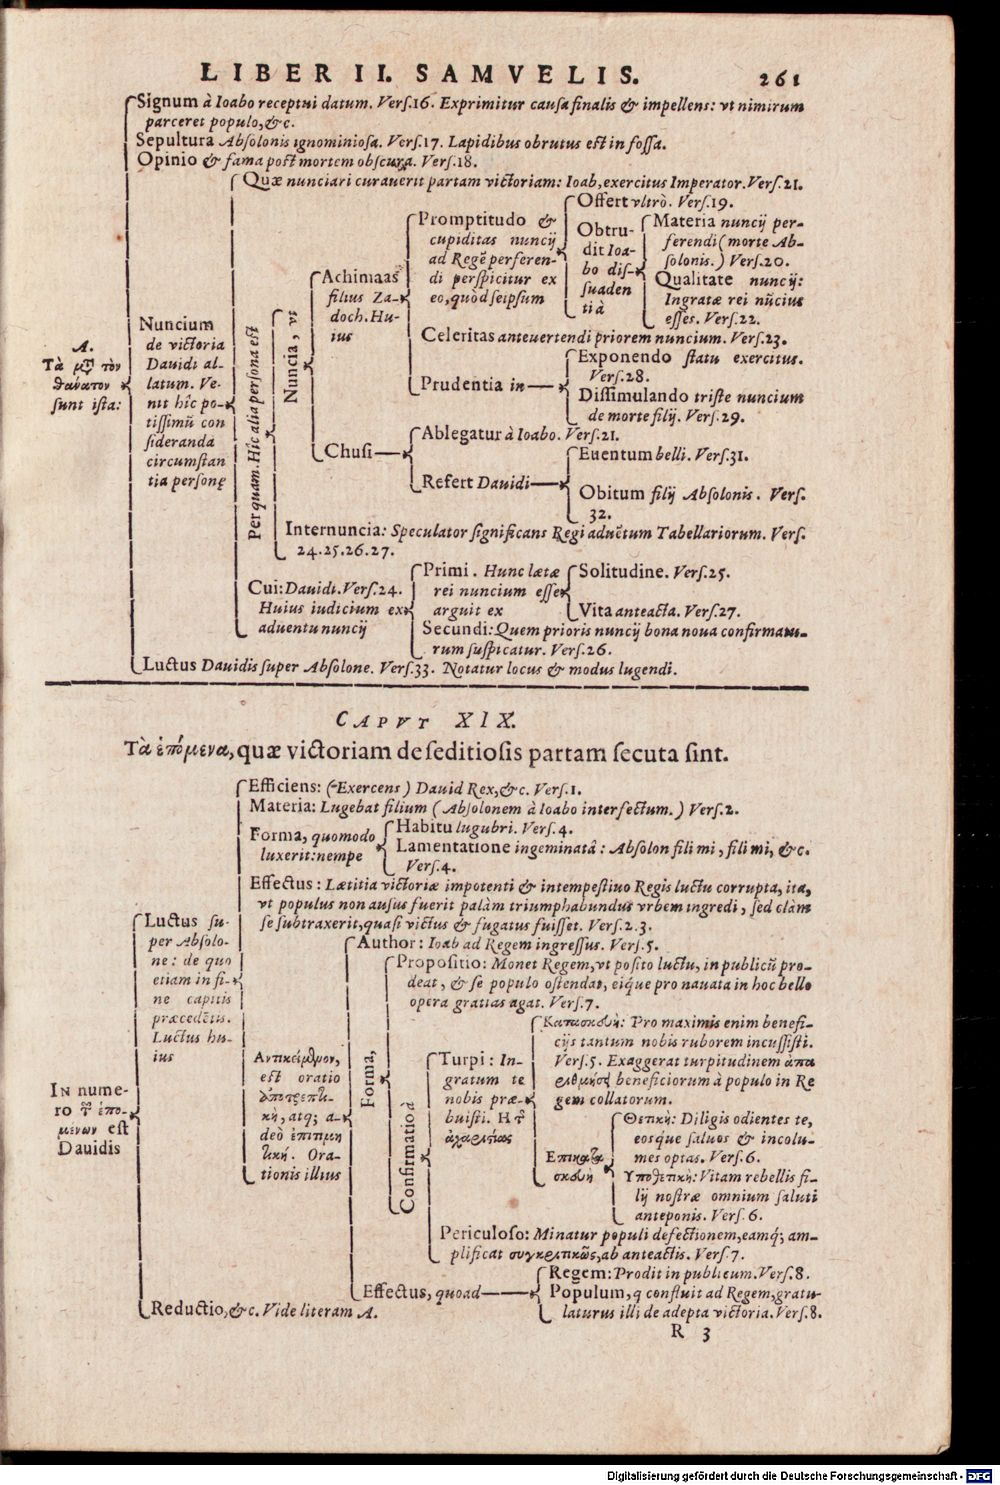 LIBER II. SAMVELIS. 261
Signum à Ioabo receptui datum. Vers.16. Exprimitur causa finalis & impellens: vt nimirum
parceret populo, &c.
Sepultura Absolonis ignominiosa. Vers.17. Lapidibus obrutus est in fossa.
Opinio & fama post mortem obscura. Vers.18.
A.
Τὰ μτ τὸν
θάνατον
sunt ista:
Nuncium
de victoria
Dauidi al-
latum. Ve-
nit hîc po-
tissimũ con
sideranda
circumstan
tia personę
Per quam. Hîc alia persona est
Quæ nunciari curauerit partam victoriam: Ioab, exercitus Imperator. Vers.21.
Nuncia, vt
Achimaas
filius Za-
doch. Hu-
ius
Promptitudo &
cupiditas nuncij
ad Regẽ perferen-
di perspicitur ex
eo, quòd seipsum
Offert vltrò. Vers.19.
Obtru-
dit Ioa-
bo dis-
suaden
ti à
Materia nuncij per-
ferendi (morte Ab-
solonis.) Vers.20.
Qualitate nuncij:
Ingratæ rei nũcius
esses. Vers.22.
Celeritas anteuertendi priorem nuncium. Vers.23.
Prudentia in
Exponendo statu exercitus.
Vers.28.
Dissimulando triste nuncium
de morte filij. Vers.29.
Chusi
Ablegatur à Ioabo. Vers.21.
Refert Dauidi
Euentum belli. Vers.31.
Obitum filij Absolonis. Vers.
32.
Internuncia: Speculator significans Regi aduẽtum Tabellariorum. Vers.
24.25.26.27.
Cui: Dauidi. Vers.24.
Huius iudicium ex
aduentu nuncij
Primi. Hunc lætæ
rei nuncium esse
arguit ex
Solitudine. Vers.25.
Vita anteacta. Vers.27.
Secundi: Quem prioris nuncij bona noua confirmatu-
rum suspicatur. Vers.26.
Luctus Dauidis super Absolone. Vers.33. Notatur locus & modus lugendi.
CAPVT XIX.
Τὰ ἑπόμενα, quæ victoriam de seditiosis partam secuta sint.
IN nume-
ro τ ἑπο-
μένων est
Dauidis
Luctus su-
per Absolo-
ne: de quo
etiam in fi-
ne capitis
præcedẽtis.
Luctus hu-
ius
Efficiens: (Exercens) Dauid Rex, &c. Vers.1.
Materia: Lugebat filium (Absolonem à Ioabo interfectum.) Vers.2.
Forma, quomodo
luxerit: nempe
Habitu lugubri. Vers.4.
Lamentatione ingeminatâ: Absolon fili mi, fili mi, &c.
Vers.4.
Effectus: Lætitia victoriæ impotenti & intempestiuo Regis luctu corrupta, ita,
vt populus non ausus fuerit palàm triumphabundus vrbem ingredi, sed clàm
se subtraxerit, quasi victus & fugatus fuisset. Vers.2.3.
Αντικείμενον,
est oratio
ἀποτρεπτι-
κὴ, atq; a-
deò ἐπιτιμη
τική. Ora-
tionis illius
Author: Ioab ad Regem ingressus. Vers.5.
Forma,
Propositio: Monet Regem, vt posito luctu, in publicũ pro-
deat, & se populo ostendat, eique pro nauata in hoc bello
opera gratias agat. Vers.7.
Confirmatio à
Turpi: In-
gratum te
nobis præ-
buisti. H τ
ἀχαριστίας
Κατασκευή: Pro maximis enim benefi-
cijs tantum nobis ruborem incussisti.
Vers.5. Exaggerat turpitudinem ἀπα
ριθμήσει beneficiorum à populo in Re
gem collatorum.
Επικατα
σκευή
Θετική: Diligis odientes te,
eosque saluos & incolu-
mes optas. Vers.6.
Υποθετική: Vitam rebellis fi-
lij nostræ omnium saluti
anteponis. Vers.6.
Periculoso: Minatur populi defectionem, eamq; am-
plificat συγκριτικῶς, ab anteactis. Vers.7.
Effectus, quoad
Regem: Prodit in publicum. Vers.8.
Populum, q confluit ad Regem, gratu-
laturus illi de adepta victoria. Vers.8.
Reductio, &c. Vide literam A.
R 3
Digitalisierung gefördert durch die Deutsche Forschungsgemeinschaft - DFG